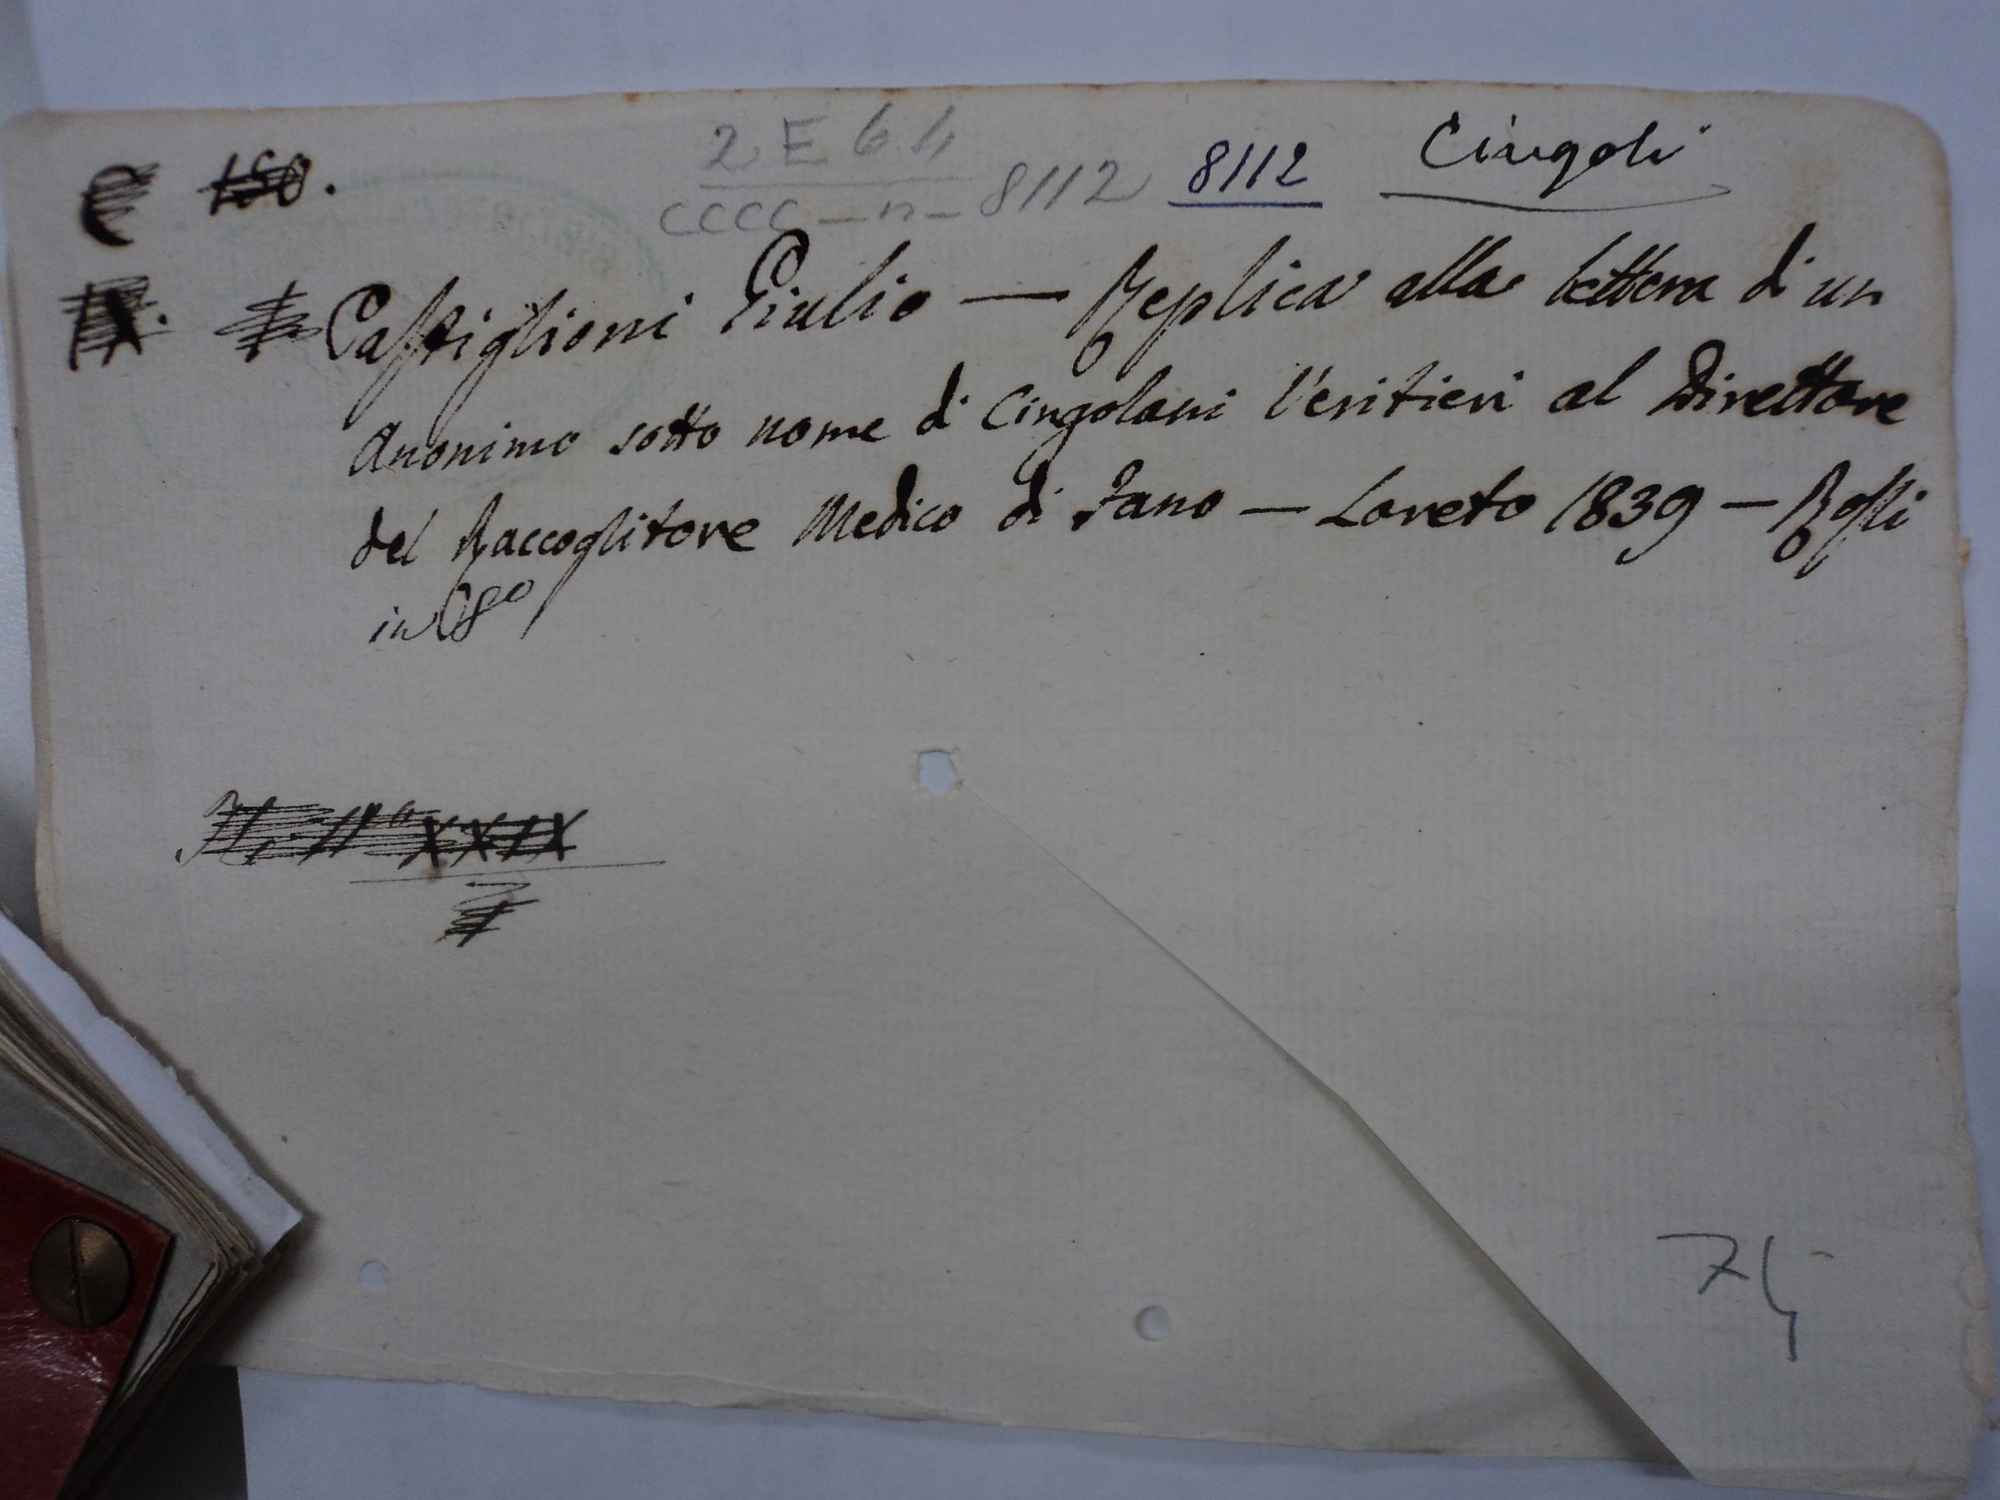 € 150.
2 E 6 4
CCCC - n - 8112 8112 Cingoli
Castiglioni Giulio — Replica alla lettera di un
Anonimo sotto nome di Cingolani l'eritieri al Direttore
del Raccoglitore Medico di Fano — Loreto 1839 — Rossi
in 8º
XXIX